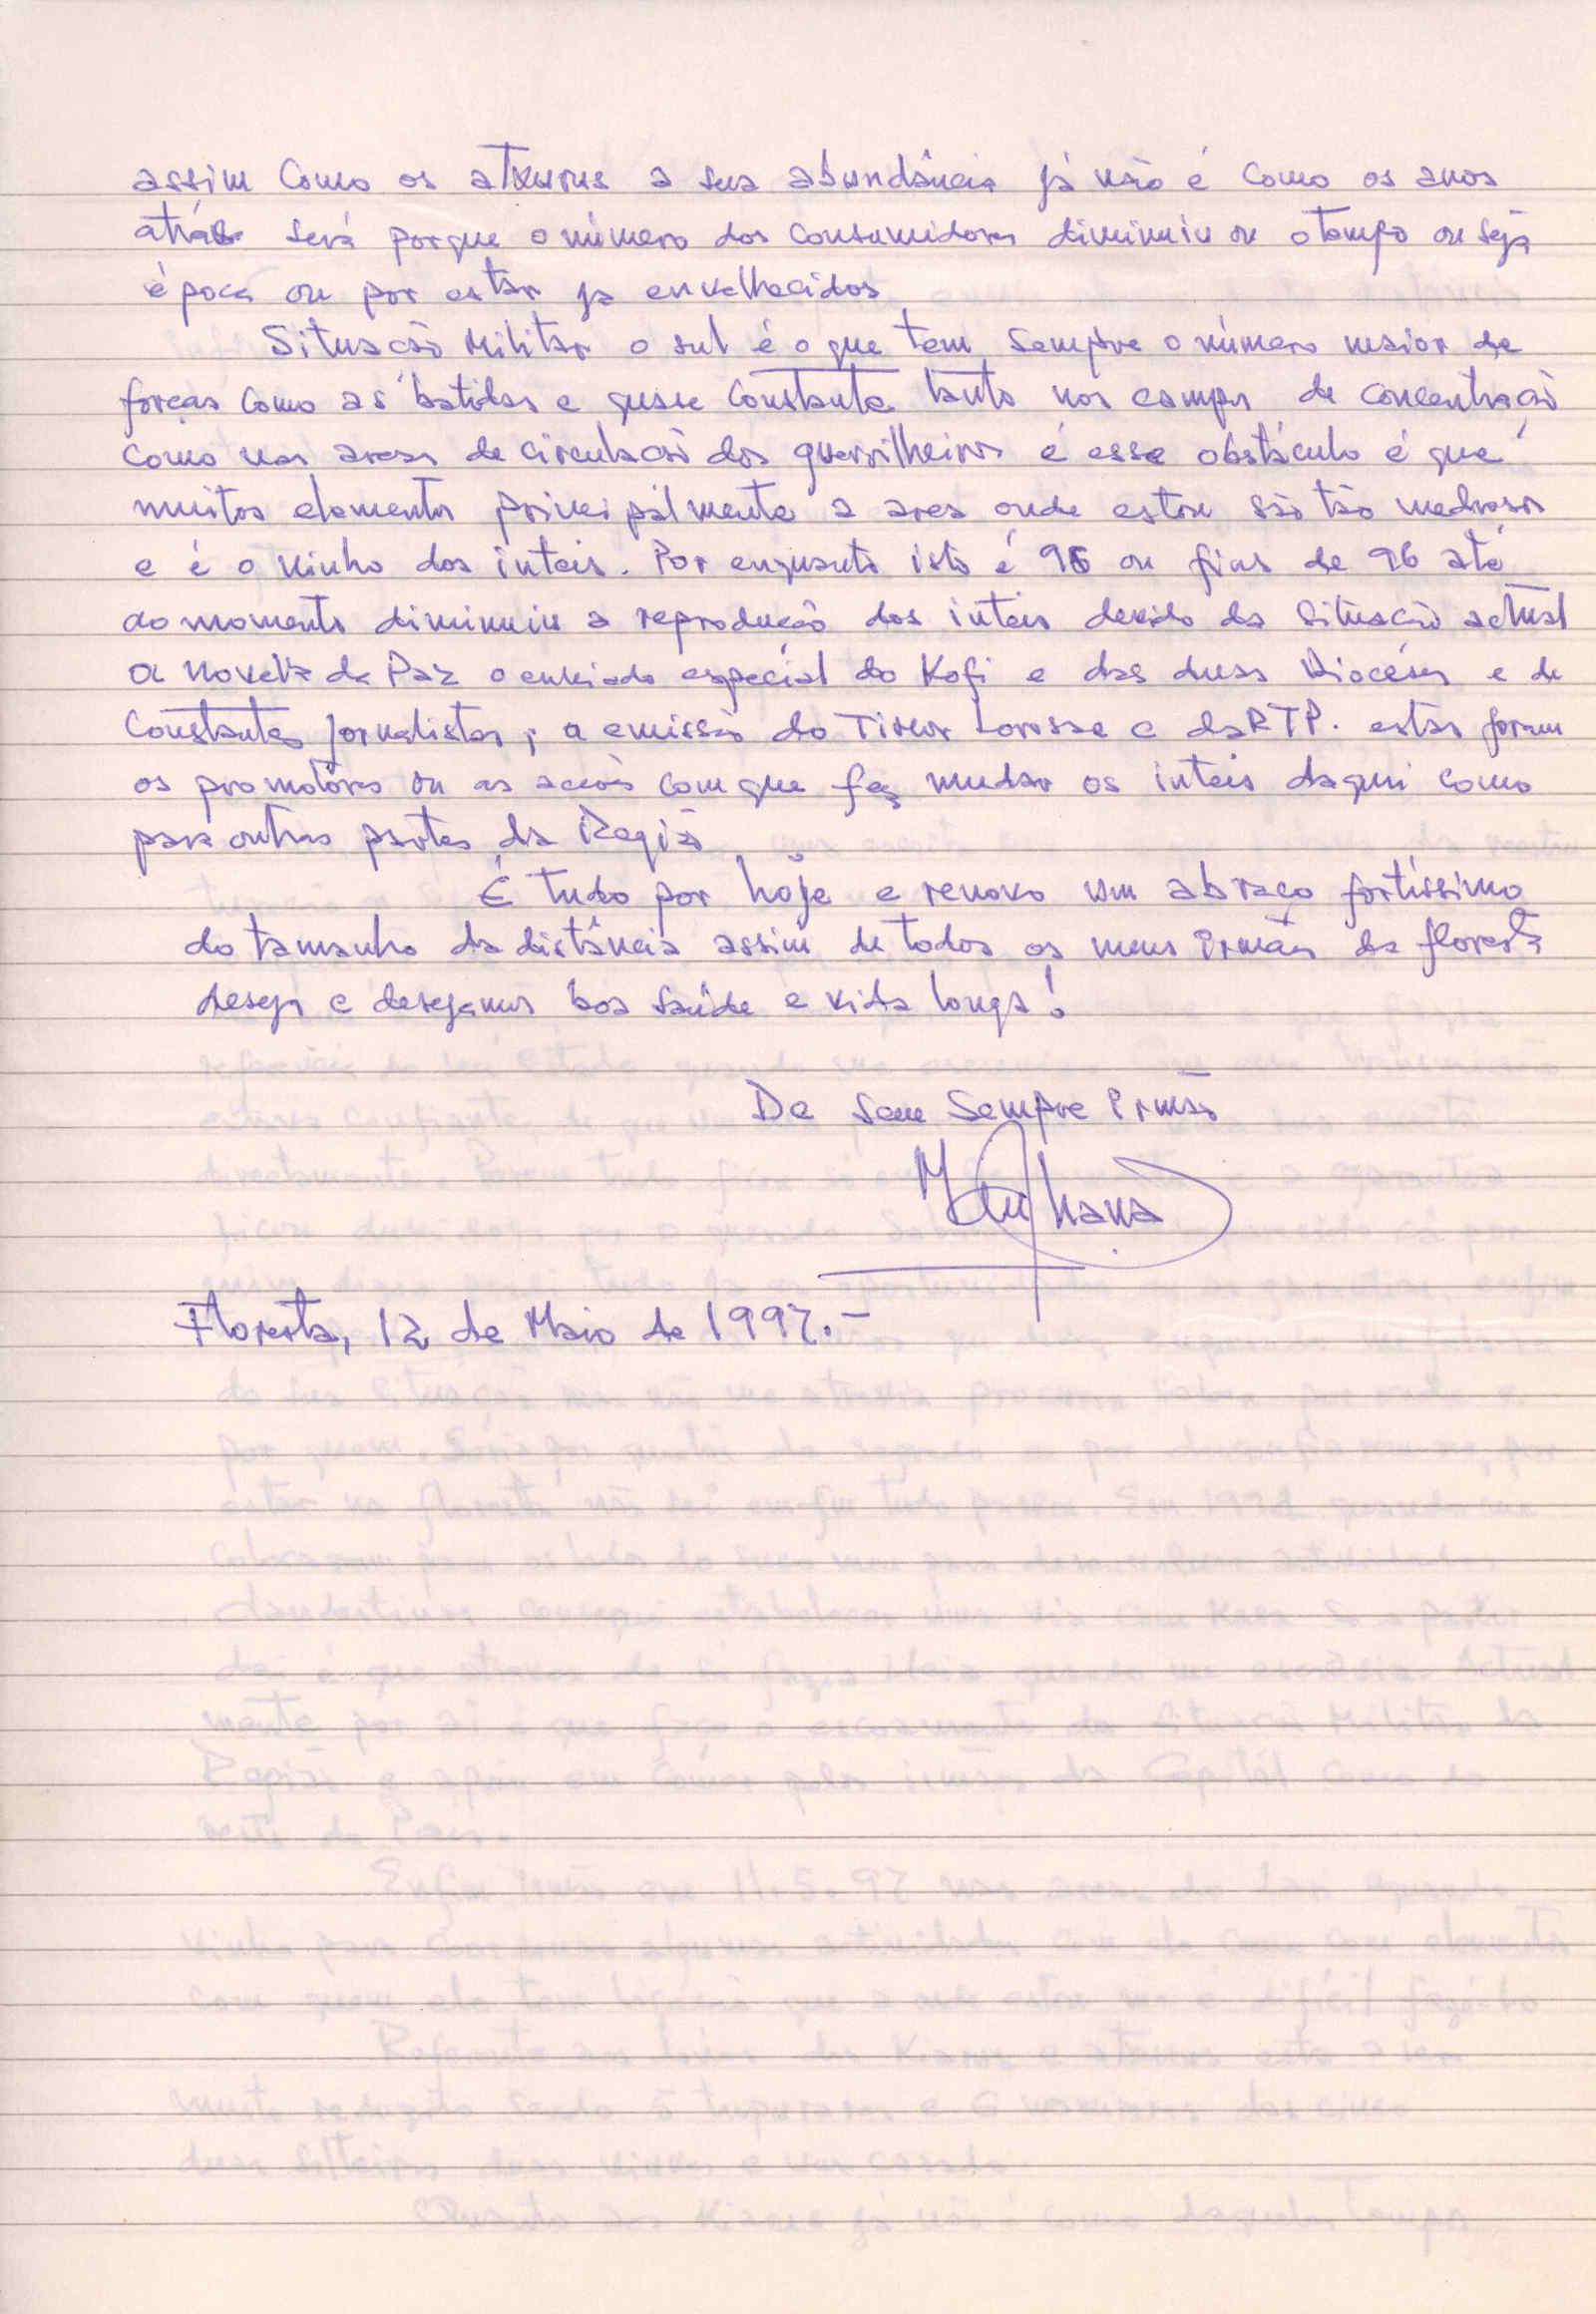 assim como os atxurus a sua abundância já não é como os anos
atrás será porque o número dos consumidores diminuiu ou o tempo ou seja
época ou por estar ja envelhecidos
Situacão Militar o sul é o que tem sempre o número maior de
forças como as batidas e quase constante tanto nos campos de concentração
como nas areas de circulacão dos guerrilheiros e esse obstáculo é que
muitos elementos principálmente a area onde estou são tão medrosos
e é o ninho dos inteis. Por enquanto isto é 96 ou fins de 96 até
ao momento diminuiu a reprodução dos inteis devido da situação actual
a novela da Paz o enviado especíal do Kofi e das duas Dioceses e de
constantes jornalistas, a emissão do Timor Lorosae e da RTP. estas foram
os promotôres ou as acões com que faz mudar os inteis daqui como
para outras partes da Região
É tudo por hoje e renovo um abraço fortíssimo
do tamanho da distância assim de todos os meus irmãos da floresta
desejo e desejamos boa saúde e vida longa!
De seu sempre irmão
Floresta, 12 de Maio de 1997.-